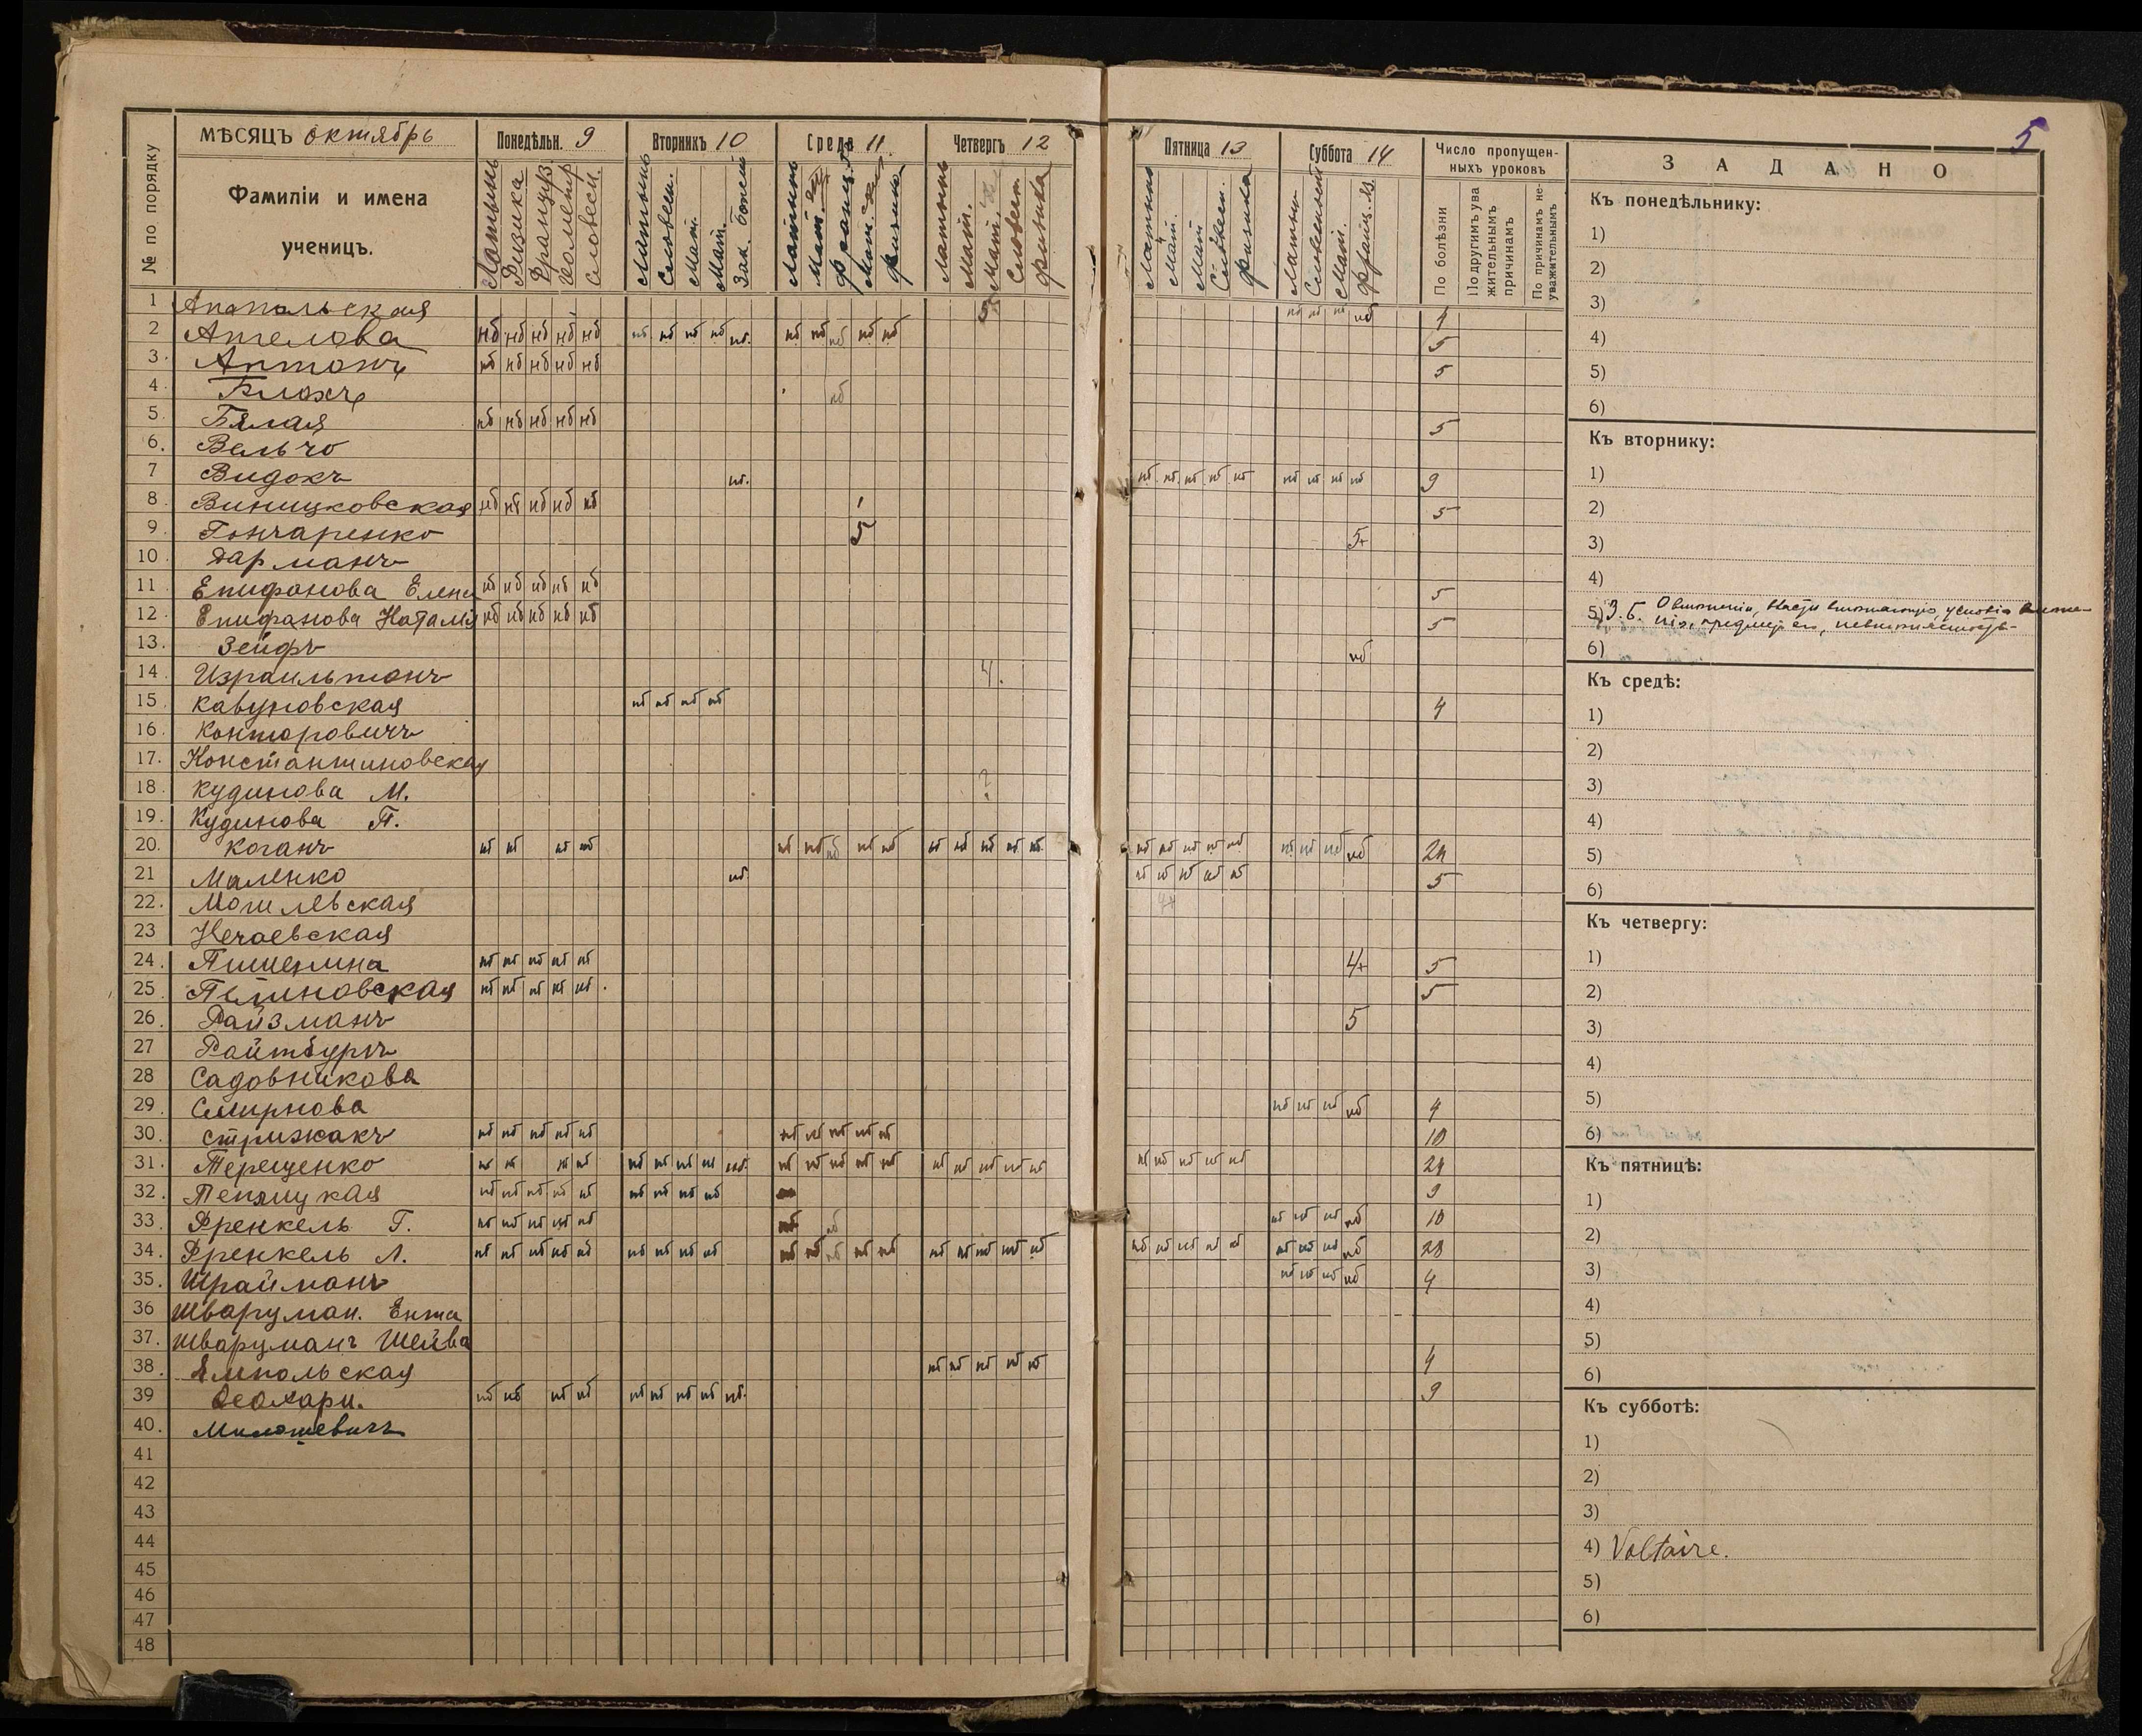 5
МѢСЯЦЪ октябрь
Понедѣльн. 9
Вторникъ 10
Среда 11
Четвергъ 12
Пятница 13
Суббота 14
Число пропущен-
ныхъ уроковъ
ЗАДАНО
№ по порядку
Фамиліи и имена
ученицъ.
Латынь
Физика
Француз.
Словесн.
Латынь
Словесн.
Мат.
Мат.
Зак. Божій
Латынь
Мат.
Француз.
Мат.
Физика
Латынь
Мат.
Мат.
Словесн.
Физика
Латынь
Мат.
Мат
Словесн.
Физика
Латын
Словесность
Мат.
Франц. яз.
По болѣзни
По другимъ ува
жительнымъ
причинамъ
По причинамъ не-
уважительнымъ
1 Анапольская 5 нб нб нб нб 4
2 Ангелова нб нб нб нб нб нб нб нб нб нб. нб нб нб нб нб 5
3. Антонъ нб нб нб нб нб 5
4. Блохъ нб
5. Бялая нб нб нб нб нб 5
6. Вельчо
7 Видокъ нб. нб нб нб нб нб нб нб нб нб 9
8. Виницковская нб нб нб нб нб 5
9. Гончаренко 5 5+
10. Дарманъ
11 Епифанова Елена нб нб нб нб нб 5
12. Епифанова Наталія нб нб нб нб нб 5
13. Зейфъ нб
14. Израильтонъ 4.
15. Кавуновская нб нб нб нб 4
16. Конторовичъ
17. Константиновская
18. Кудинова М. ?
19. Кудинова П.
20. Коганъ нб нб нб нб нб нб нб нб нб нб нб нб нб нб нб нб нб нб нб нб нб нб нб 24
21 Маленко нб нб нб нб нб нб 5
22. Могилевская 4+
23 Нечаевская
24. Пшенина нб нб нб нб нб 4+ 5
25. Петиновская нб нб нб нб нб. 5
26. Райзманъ 5
27 Райтбургъ
28 Садовникова
29. Смирнова нб нб нб нб 4
30. Стрижакъ нб нб нб нб нб нб нб нб нб нб 10
31. Терещенко нб нб нб нб нб нб нб нб нб. нб нб нб нб нб нб нб нб нб нб нб нб нб нб нб 24
32. нб нб нб нб нб нб нб нб нб 9
33. Френкель Г. нб нб нб нб нб нб нб нб нб нб нб 10
34. Френкель Л. нб нб нб нб нб нб нб нб нб нб нб нб нб нб нб нб нб нб нб нб нб нб нб нб нб нб нб нб 28
35. Шрайманъ нб нб нб нб 4
36 Шварцман. Ента
37. Шварцманъ Шейва
38. Ямпольская нб нб нб нб нб 4
39 Феохари. нб нб нб нб нб нб нб нб нб. 9
40. Милошевичъ
41
42
43
44
45
46
47
48
Къ понедѣльнику:
1)
2)
3)
4)
5)
6)
Къ вторнику:
1)
2)
3)
4)
5) З.Б. О вмѣненіи, условія
6)
Къ средѣ:
1)
2)
3)
4)
5)
6)
Къ четвергу:
1)
2)
3)
4)
5)
6)
Къ пятницѣ:
1)
2)
3)
4)
5)
6)
Къ субботѣ:
1)
2)
3)
4) Voltaire.
5)
6)